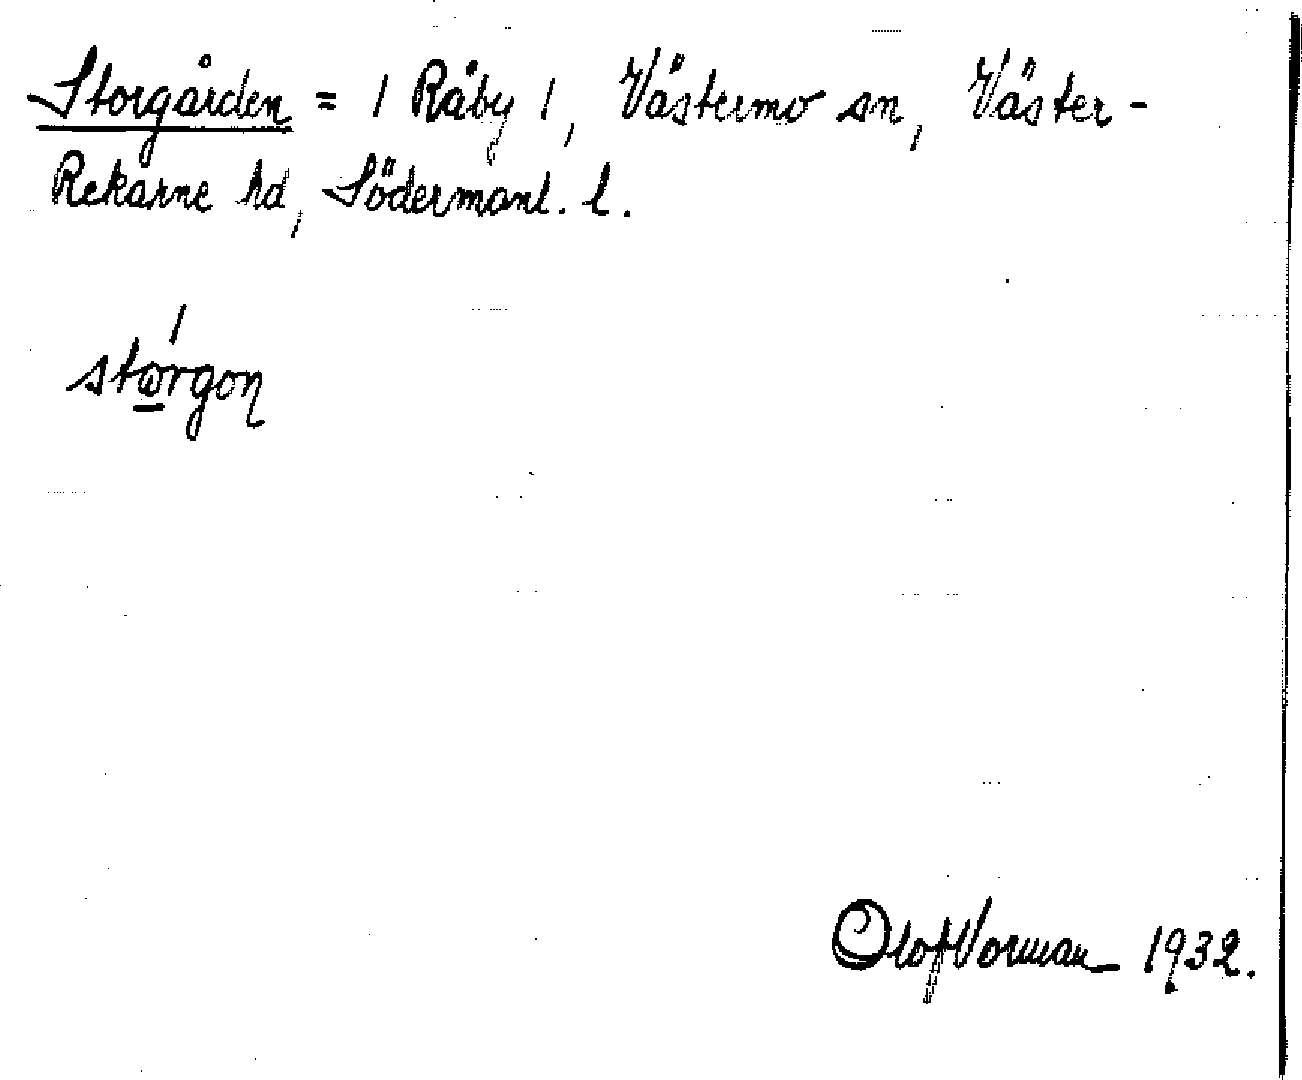 Storgården = 1 Råby 1, Västermo sn, Väster-
Rekarne hd, Södermanl. l.
størgon
Olof Vorman 1932.